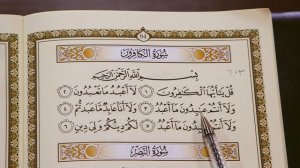 سُورَةُ الكَافِرُونَ
بِسْمِ اللَّهِ الرَّحْمَٰنِ الرَّحِيمِ
قُلْ يَا أَيُّهَا الْكَافِرُونَ ١ لَا أَعْبُدُ مَا تَعْبُدُونَ ٢
وَلَا أَنتُمْ عَابِدُونَ مَا أَعْبُدُ ٣ وَلَا أَنَا عَابِدٌ مَّا عَبَدتُّمْ ٤
وَلَا أَنتُمْ عَابِدُونَ مَا أَعْبُدُ ٥ لَكُمْ دِينُكُمْ وَلِيَ دِينِ ٦
سُورَةُ النَّصْرِ